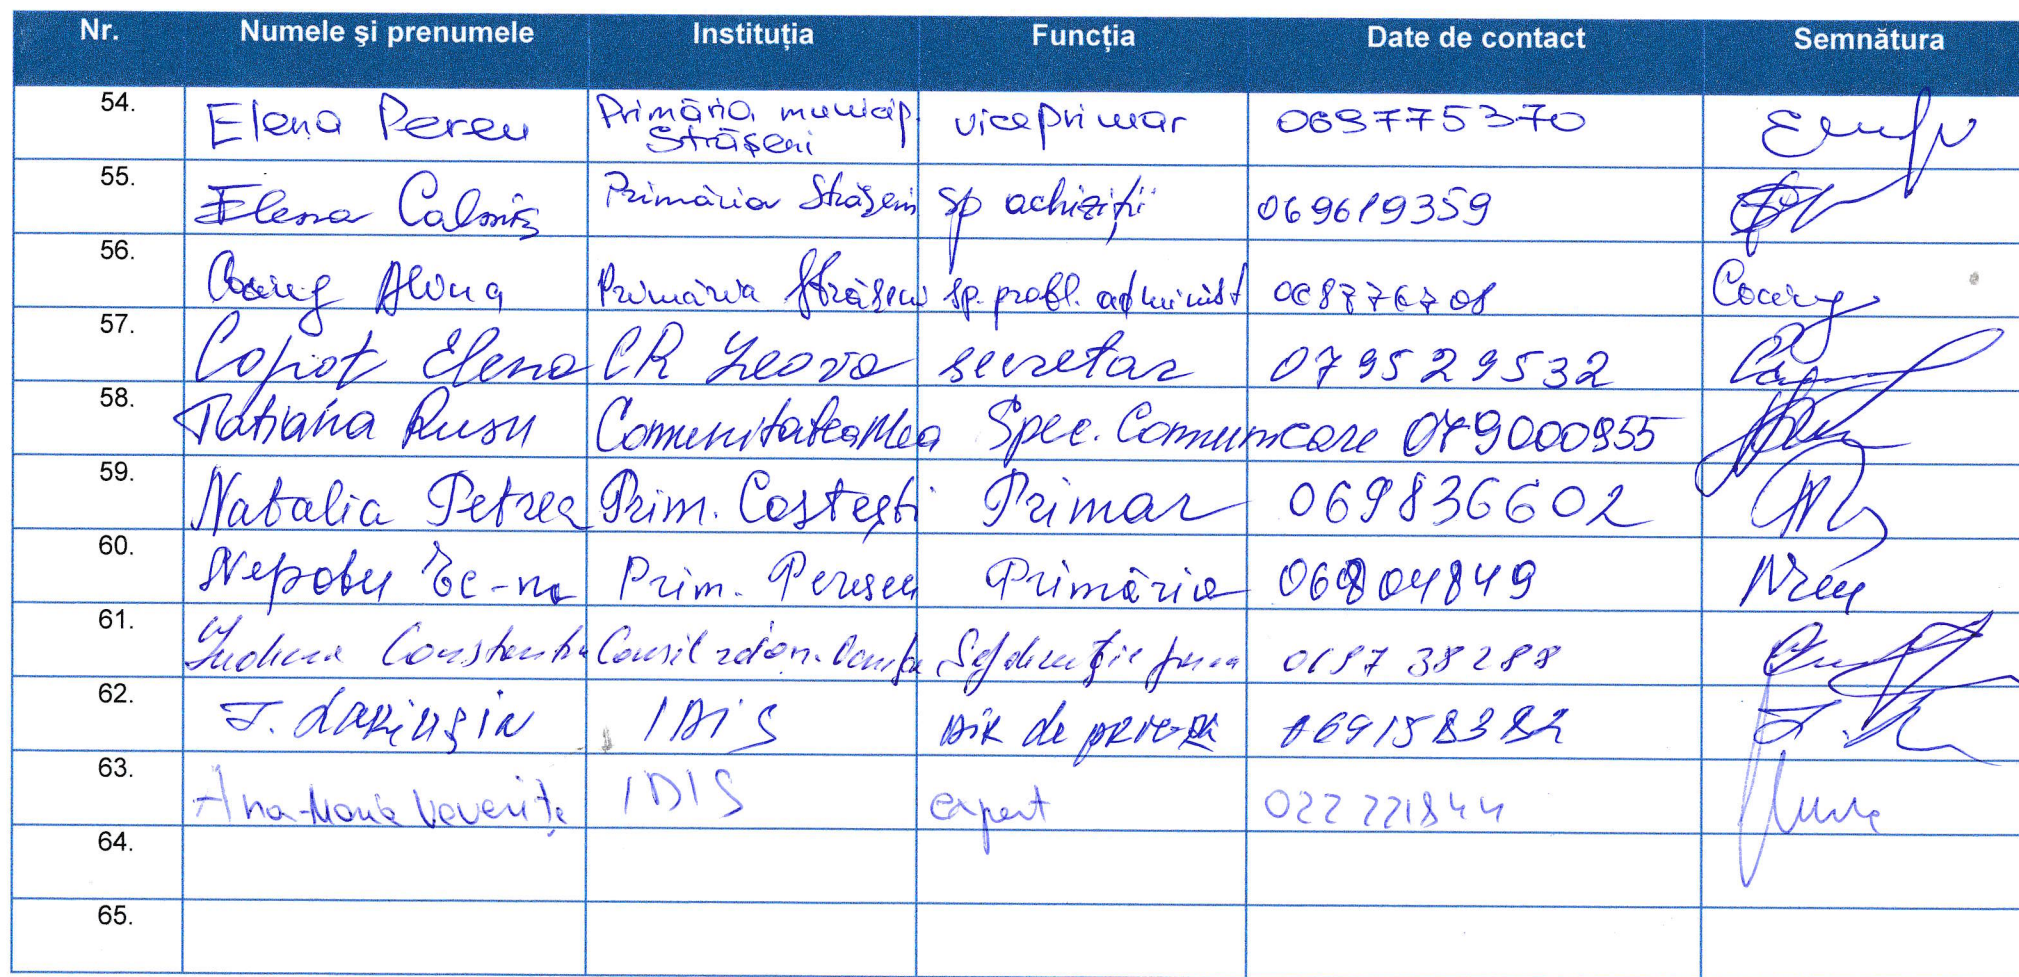 Nr. Numele și prenumele Instituția Funcția Date de contact Semnătura
54. Elena Pereu Primăria municip. Strășeni viceprimar 069775370
55. Elena Calmîș Primăria Strășeni sp achiziții 069619359
56. Alina Primăria Strășeni sp. probl. administ 068776708
57. Copot Elena CR Leova secretar 079529532
58. Tatiana Rusu Comunitatea Mea Spec. Comunicare 079000955
59. Natalia Petrea Prim. Costești Primar 069836602
60. Ec-na Prim. Peresecina Primăria 069804849
61. Consil raion. 069738288
62. IDIS de 069158382
63. Ana-Maria Veverița IDIS expert 022221844
64.
65.